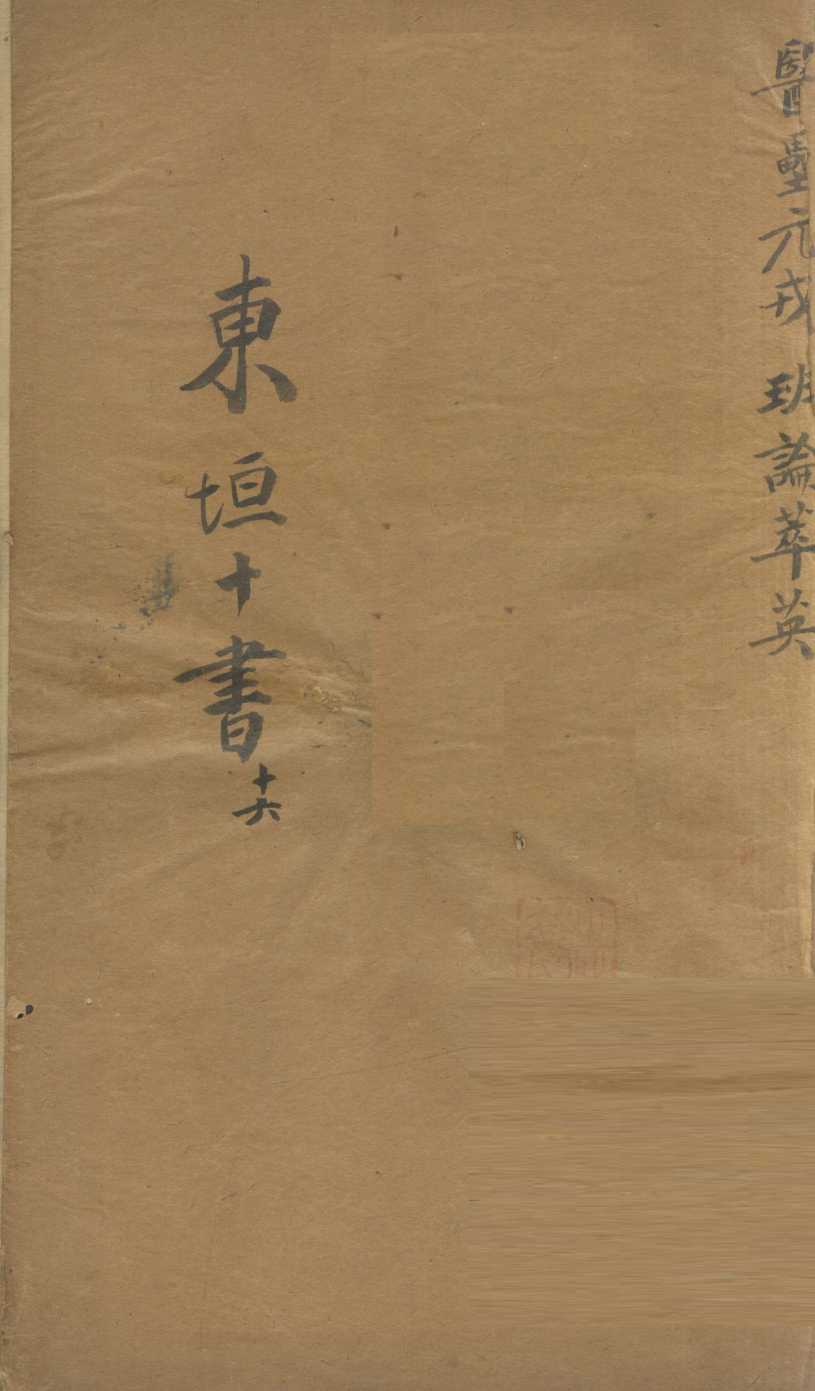 醫壘元戎 班論萃英
東垣十書十六